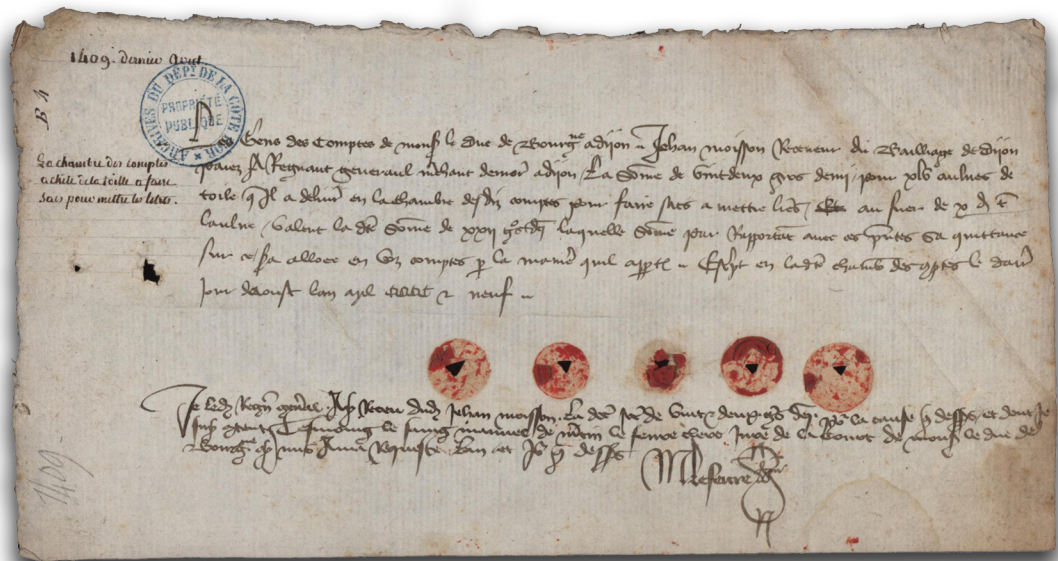 1409. dernier Aout
ARCHIVES DU DÉPT DE LA CÔTE D'OR
PROPRIÉTÉ
PUBLIQUE
B 4
La chambre des comptes
achete de la toille a faire
sacs pour mettre les lettres.
Gens des Comptes de monsr le duc de Bourgne a dijon Jehan moisson Receveur du Bailliage de dijon
paiez A Regnaut general mchant demor a dijon La Some de vint deux gros demi pour xlv aulnes de
toile ql a delivré en la chambre desdiz comptes pour faire sacs a mettre lres au fuer de x d t
laulne valent la dte Some de xxii gros laquelle Some par Rapportat avec ces pntes sa quittance
sur ce sra alloee en voz comptes p la maniere quil appt Escpt en ladte chambre des comptes le darr
jour daoust lan mil CCCC et neuf
Je ledit Regn general Ay Receu dudit Jehan moisson La dte de vint deux gros la cause dessus et dont je
suis content Tesmoing le saing manuel de le fevre clerc Juré de la Court de monsr le duc de
Bourgne cy mis A ma Requeste lan et jour dessus
M lefevre
1409